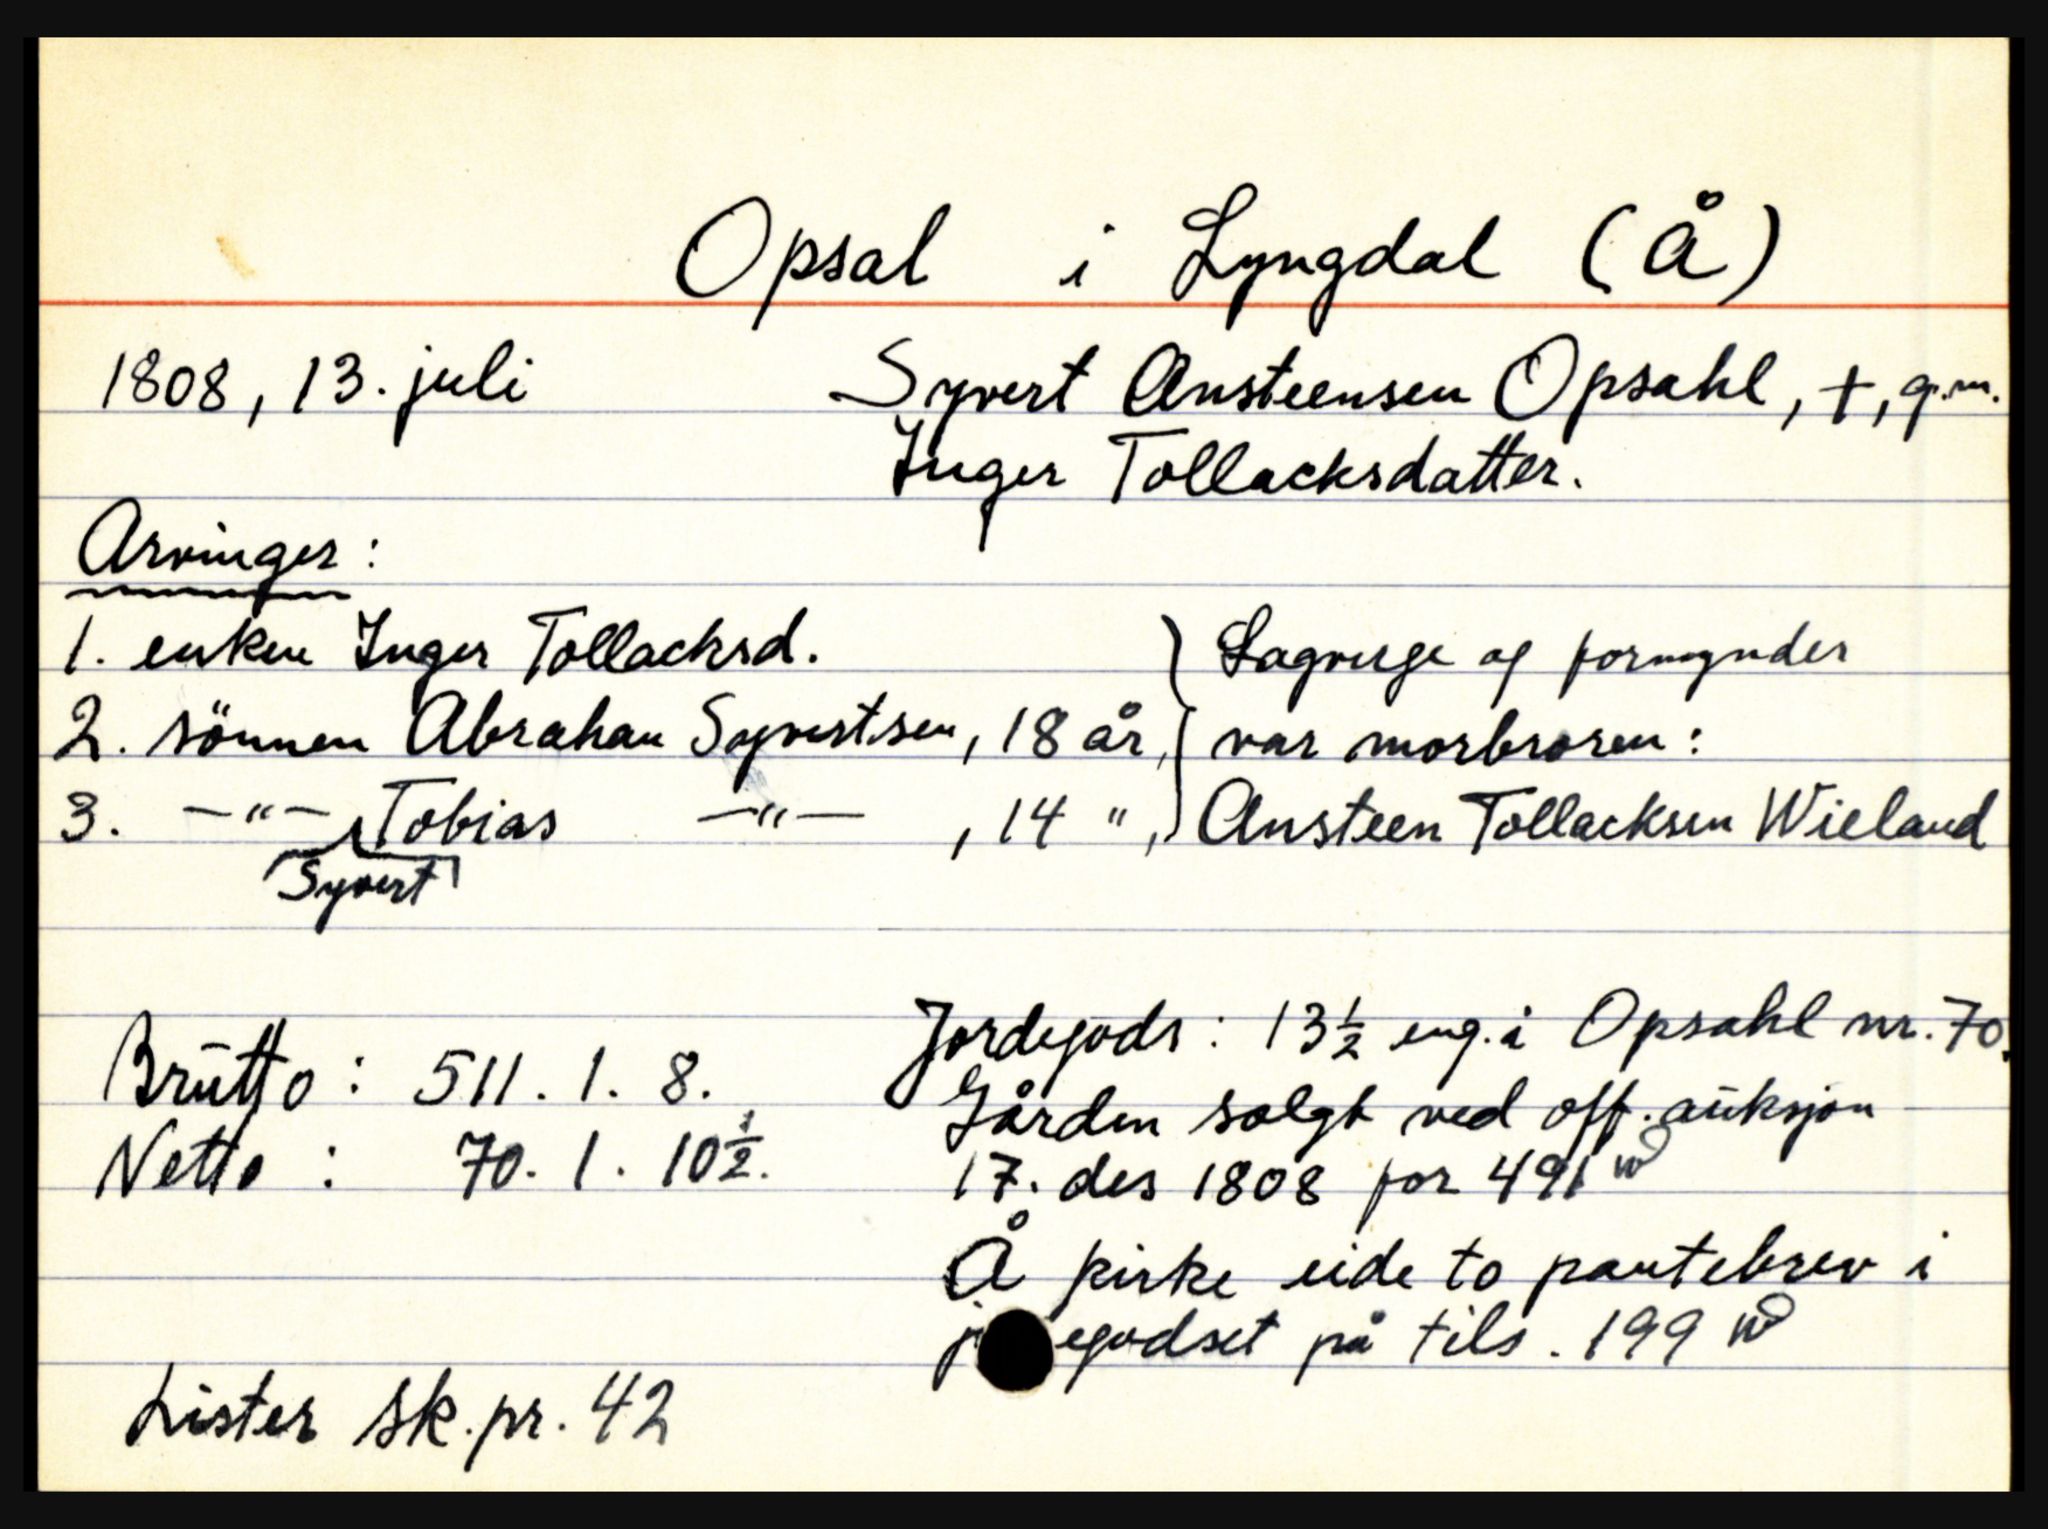 Opsal i Lyngdal (Å)
1808, 13. juli
Syvert Ansteensen Opsahl, +, g.m.
Inger Tollacksdatter.
Arvinger:
1. enken Inger Tollacksd.
2. sönnen Abraham Syvertsen, 18 år,
3. —"— Tobias —"— , 14 ",
Syvert
Lagverge og formynder
var morbroren:
Ansteen Tollacksen Wieland
Brutto: 511. 1. 8.
Netto: 70. 1. 10½.
Jordegods: 13½ eng. i Opsahl nr. 70.
Gården solgt ved off. auksjon
17. des 1808 for 491
Å kirke eide to pantebrev i
j egodset på tils. 199
Lister sk.pr. 42